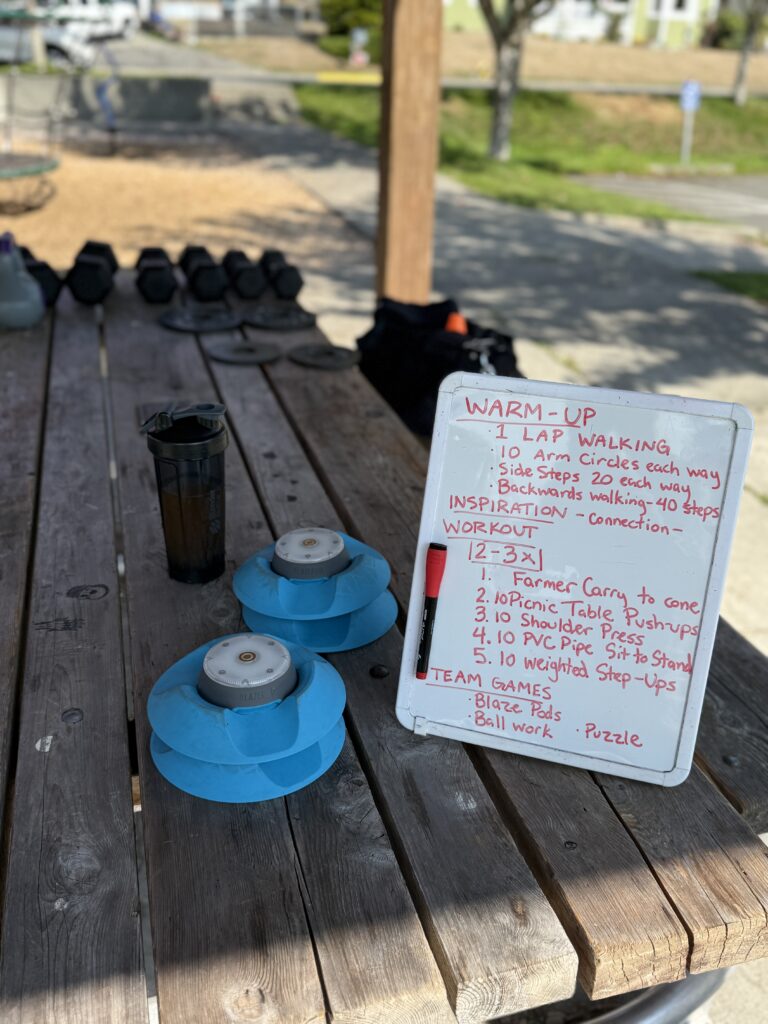 WARM-UP
· 1 LAP WALKING
· 10 Arm Circles each way
· Side Steps 20 each way
· Backwards walking - 40 steps
INSPIRATION - Connection -
WORKOUT
|2-3x|
1. Farmer Carry to cone
2. 10 Picnic Table Push-ups
3. 10 Shoulder Press
4. 10 PVC Pipe Sit to Stand
5. 10 Weighted Step-Ups
TEAM GAMES
· Blaze Pods
· Ball work · Puzzle